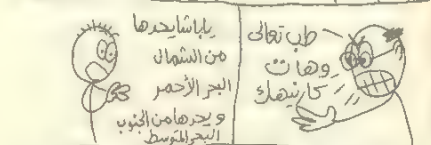 طب تعالى
وهات
كارنيهك
يا باشا يحدها
من الشمال
البحر الأحمر
ويحدها من الجنوب
البحر المتوسط